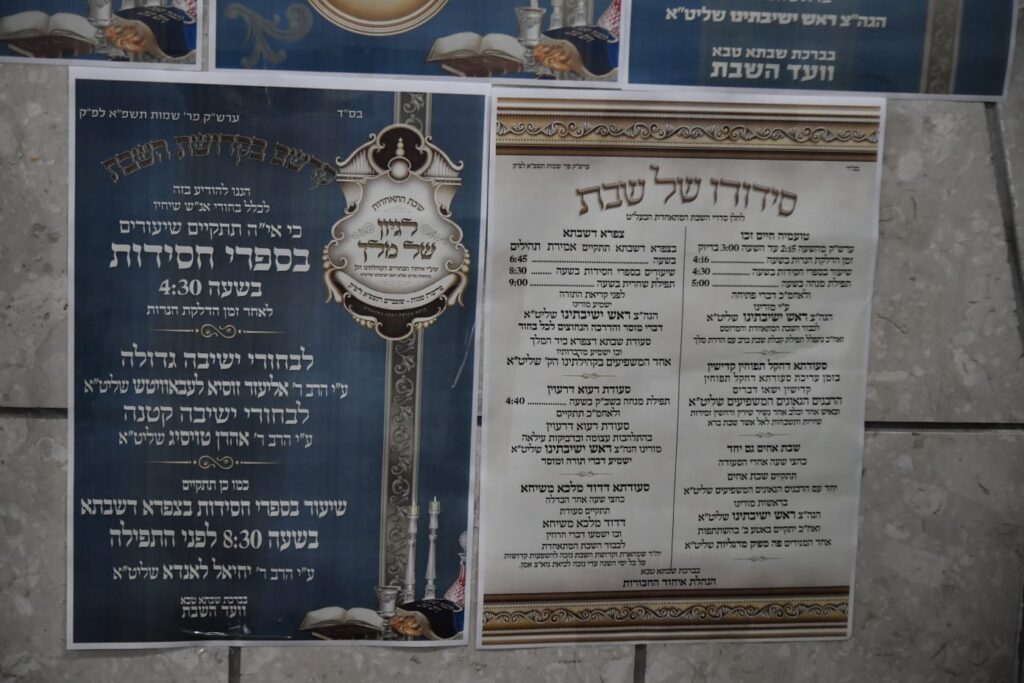 הגה"צ ראש ישיבתינו שליט"א
בברכת שבתא טבא
וועד השבת
בס"ד
ערש"ק פר' שמות תשפ"א לפ"ק
קדשם בקדושת השבת
הננו להודיע בזה
לכלל בחורי אנ"ש שיחיו
כי אי"ה תתקיים שיעורים
בספרי חסידות
בשעה 4:30
לאחר זמן הדלקת הנרות
לבחורי ישיבה גדולה
ע"י הרב ר' אליעזר זוסיא לעבאוויטש שליט"א
לבחורי ישיבה קטנה
ע"י הרב ר' אהרן טויסיג שליט"א
כמו כן תתקיים
שיעור בספרי חסידות בצפרא דשבתא
בשעה 8:30 לפני התפילה
ע"י הרב ר' יחיאל לאנדא שליט"א
בברכת שבתא טבא
וועד השבת
שבת התאחדות
לגיון
של מלך
בס"ד
ערש"ק פר' שמות תשפ"א לפ"ק
סידורו של שבת
להלן סדרי השבת המתאחדת הבעל"ט
טועמיה חיים זכו
ערש"ק מהשעה 2:15 עד השעה 3:00 בדיוק
זמן הדלקת הנרות בשעה 4:16
שיעור בספרי חסידות בשעה 4:30
תפילת מנחה בשעה 5:00
ולאחמ"כ דברי פתיחה
ע"י מורינו
הגה"צ ראש ישיבתינו שליט"א
לכבוד השבת המתאחדת והמרומם
ואח"כ תתפלל תפילת קבלת שבת ברב עם הדרת מלך
סעודתא דחקל תפוחין קדישין
בזמן עריכת סעודתא דחקל תפוחין
קדישין ישאו דברים
הרבנים הגאונים המשפיעים שליט"א
שירות ותשבחות לאל אשר שבת ברא
שבת אחים גם יחד
כחצי שעה אחרי הסעודה
תתקיים שבת אחים
יחד עם הרבנים הגאונים המשפיעים שליט"א
בראשות מורינו
הגה"צ ראש ישיבתינו שליט"א
ואח"כ יתקיים באטע ב' בהשתתפות
אחד המנידים פה מפיק מרגליות שליט"א
צפרא דשבתא
בצפרא דשבתא תתקיים אמירת תהילים
בשעה 6:45
שיעורים בספרי חסידות בשעה 8:30
תפילת שחרית בשעה 9:00
לפני קריאת התורה
ישמיע מורינו
הגה"צ ראש ישיבתינו שליט"א
דברי מוסר והדרכה הנחוצים לכל בחור
סעודת שבתא דצפרא כיד המלך
ובו ישמיע מדברותיו
אחד המשפיעים בקהילתינו הק' שליט"א
סעודת רעוא דרעוין
תפילת מנחה בשב"ק בשעה 4:40
ולאחמ"כ תתקיים
סעודת רעוא דרעוין
בהתלהבות עצומה ובדביקות עילאה
מורינו הגה"צ ראש ישיבתינו שליט"א
ישמיע דברי תורה ומוסר
סעודתא דדוד מלכא משיחא
כחצי שעה אחר הבדלה
תתקיים סעודת
דדוד מלכא משיחא
ובו ישמעו דברי חיזוק
לכבוד השבת המתאחדת
בברכת שבתא טבא
הנהלת איחוד החבורות